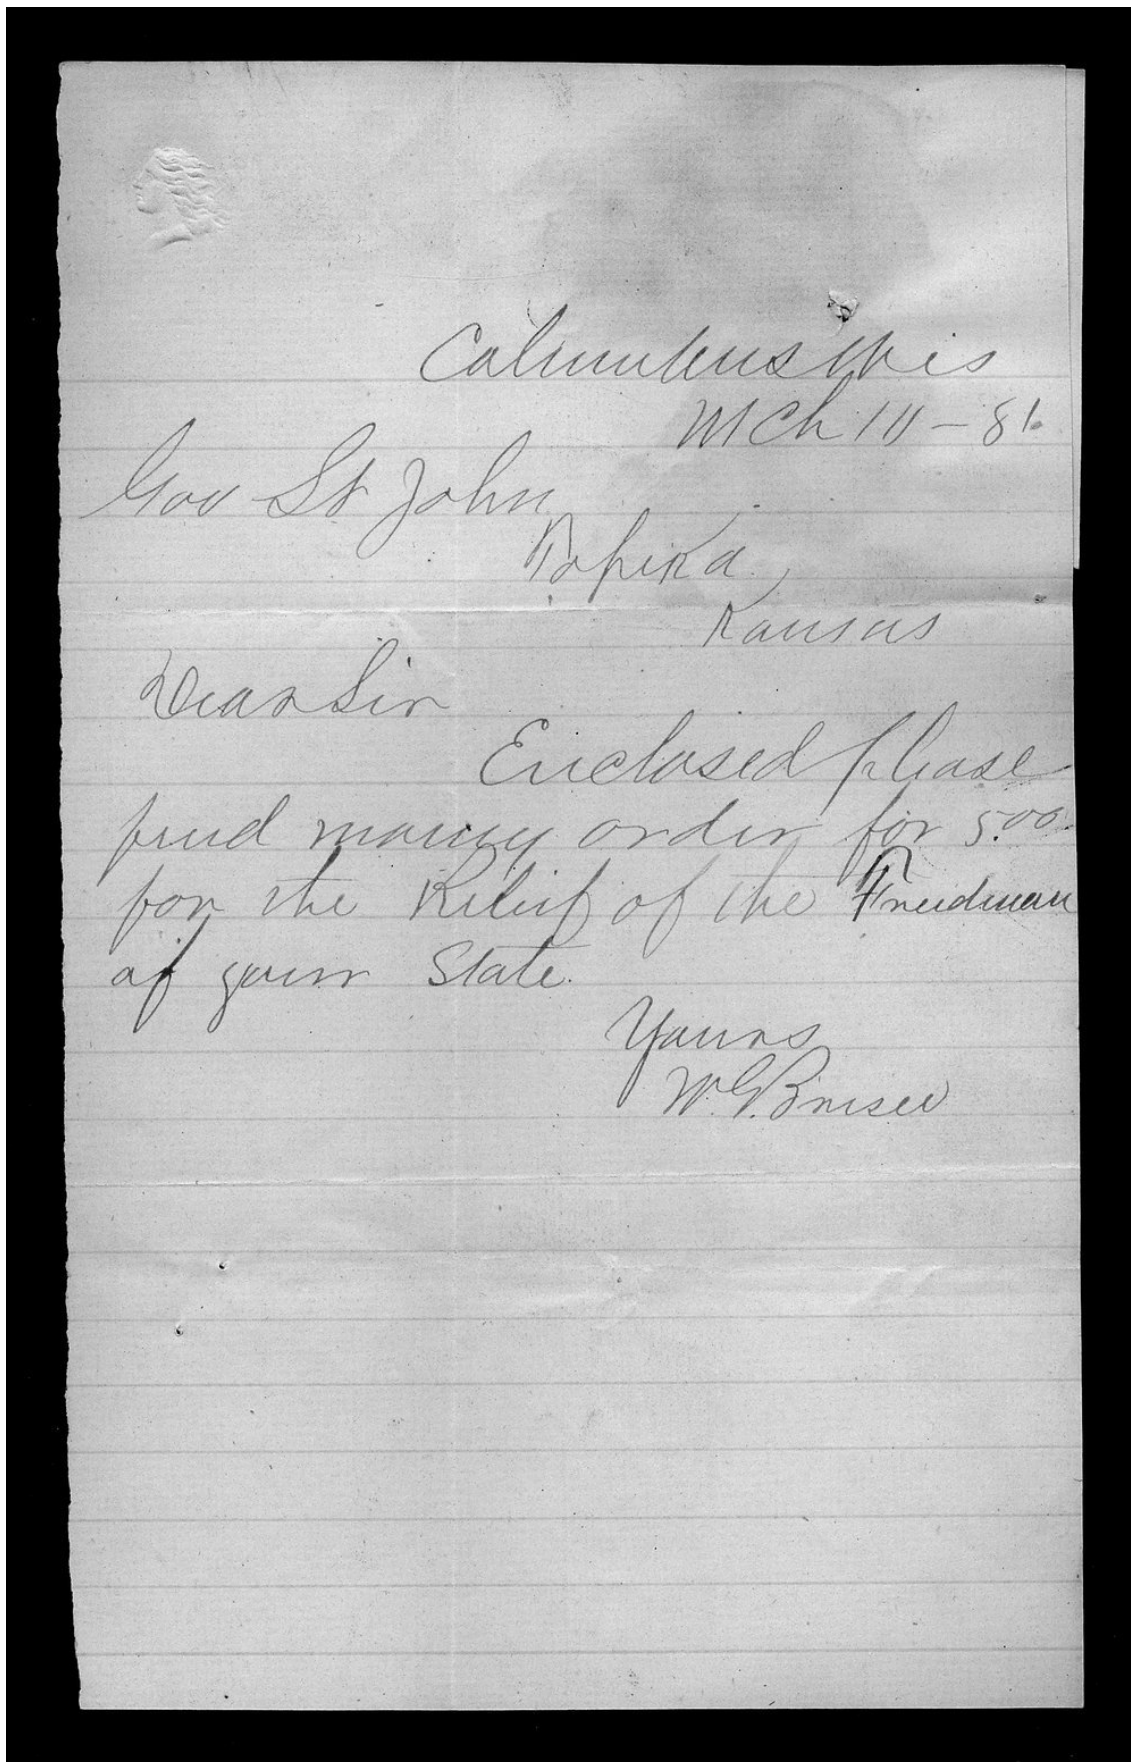 Columbus Wis
Mch 10 - 81.
Gov St John
Topeka
Kansas
Dear Sir
Enclosed please
find money order for 5.00
for the Relief of the Freedman
of your State.
Yours
W. G.